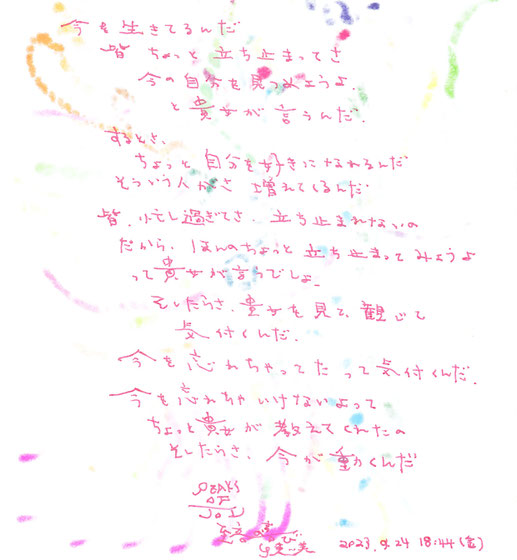 今を生きてるんだ
皆 ちょっと 立ち止まってさ
今の自分を見つめようよ
と貴女が言うんだ.
するとさ、
ちょっと自分を好きになれるんだ
そういう人がさ 増えてくるんだ
皆、忙し過ぎてさ、立ち止まれないの
だから、ほんのちょっと立ち止まってみようよ
って貴女が言うでしょ、
そしたらさ、貴女を見て、観じて
気付くんだ.
今を忘れちゃってたって気付くんだ.
今を忘れちゃいけないよって
ちょっと貴女が教えてくれたの
そしたらさ、今が動くんだ
OF
JOY
2023. 9.24 18:44